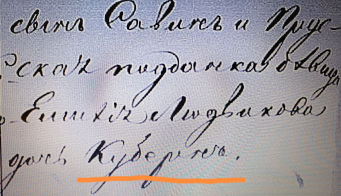 свинъ Савинъ и Прус-
ская подданка девица
Емилія Людвикова
дочь Куберинъ.